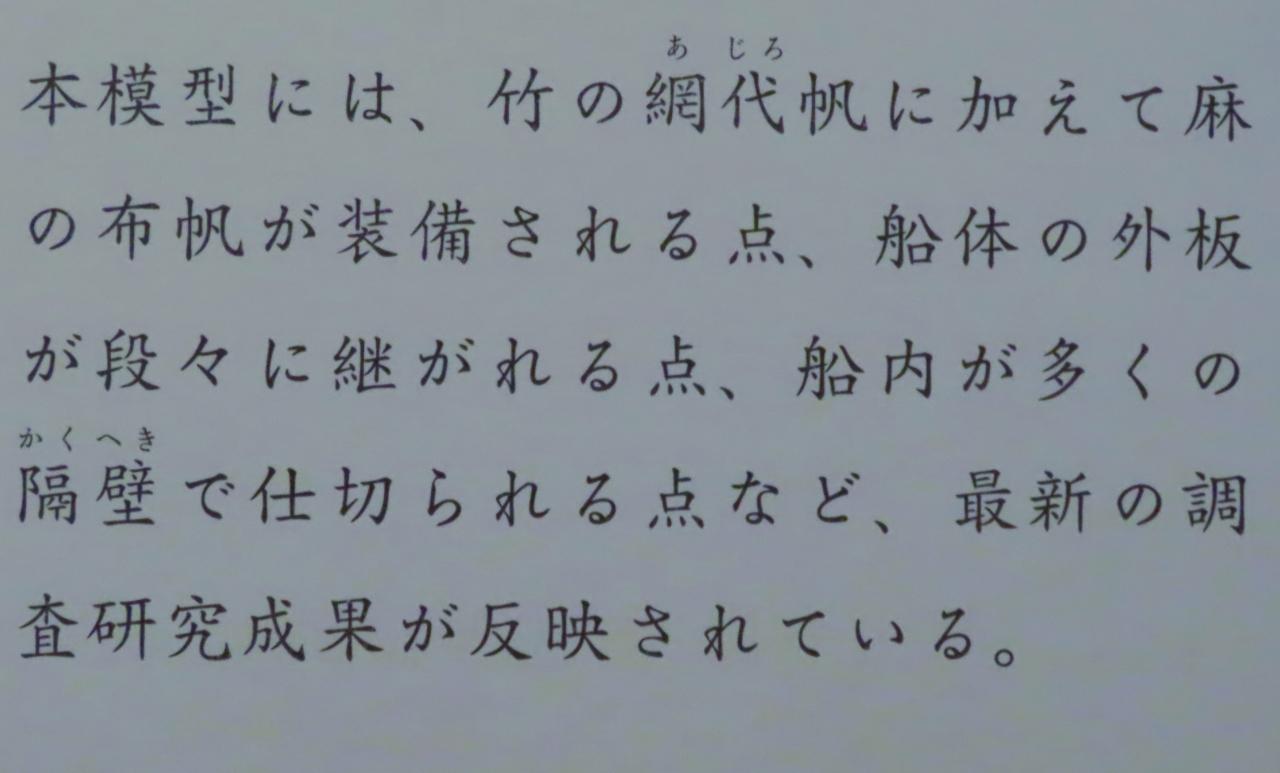 あじろ
本模型には、竹の網代帆に加えて麻
の布帆が装備される点、船体の外板
が段々に継がれる点、船内が多くの
かくへき
隔壁で仕切られる点など、最新の調
査研究成果が反映されている。